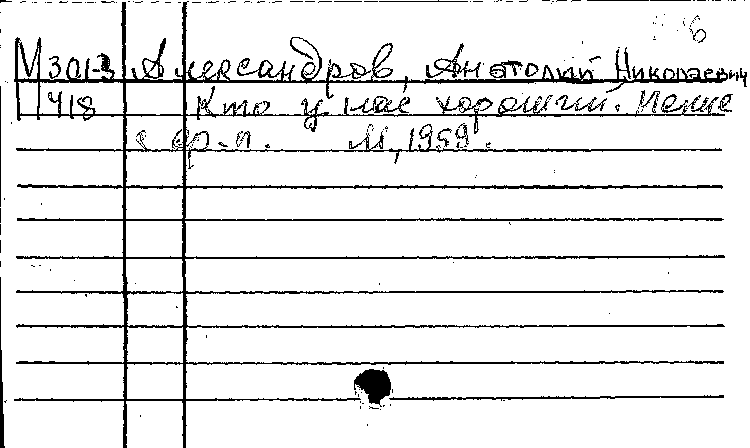 М301-3 Александров, Анатолий Николаевич
П418 Кто у нас хороший. Пение
с ф-п. М., 1959.